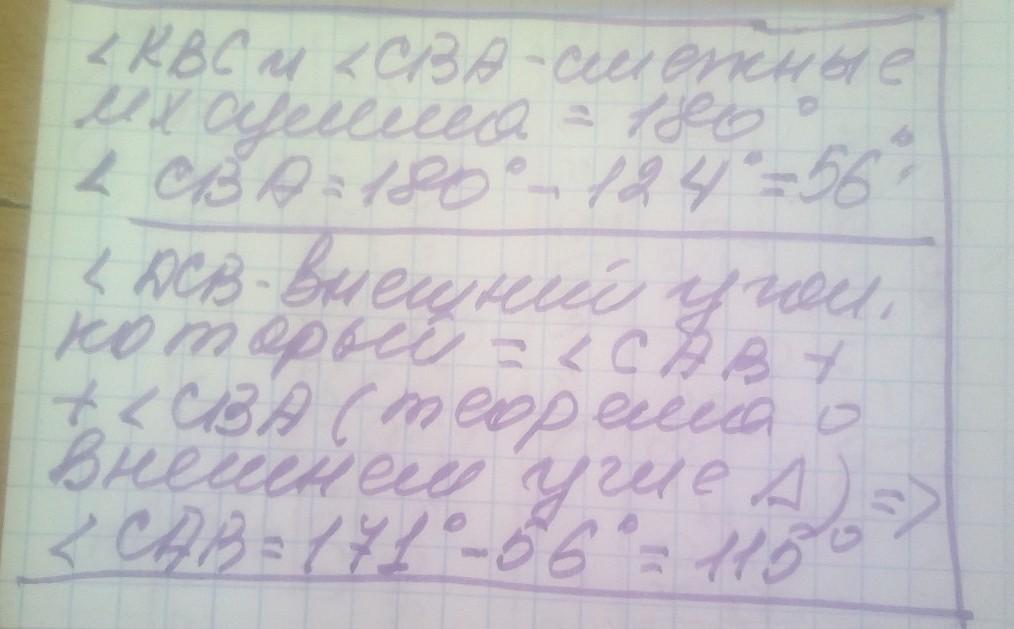 <KBC и <CBA - смежные
их сумма = 180°
< CBA = 180° - 124° = 56°
<DCB - внешний угол,
который = <CAB +
+ <CBA (теорема о
внешнем угле Δ) =>
< CAB = 171° - 56° = 115°